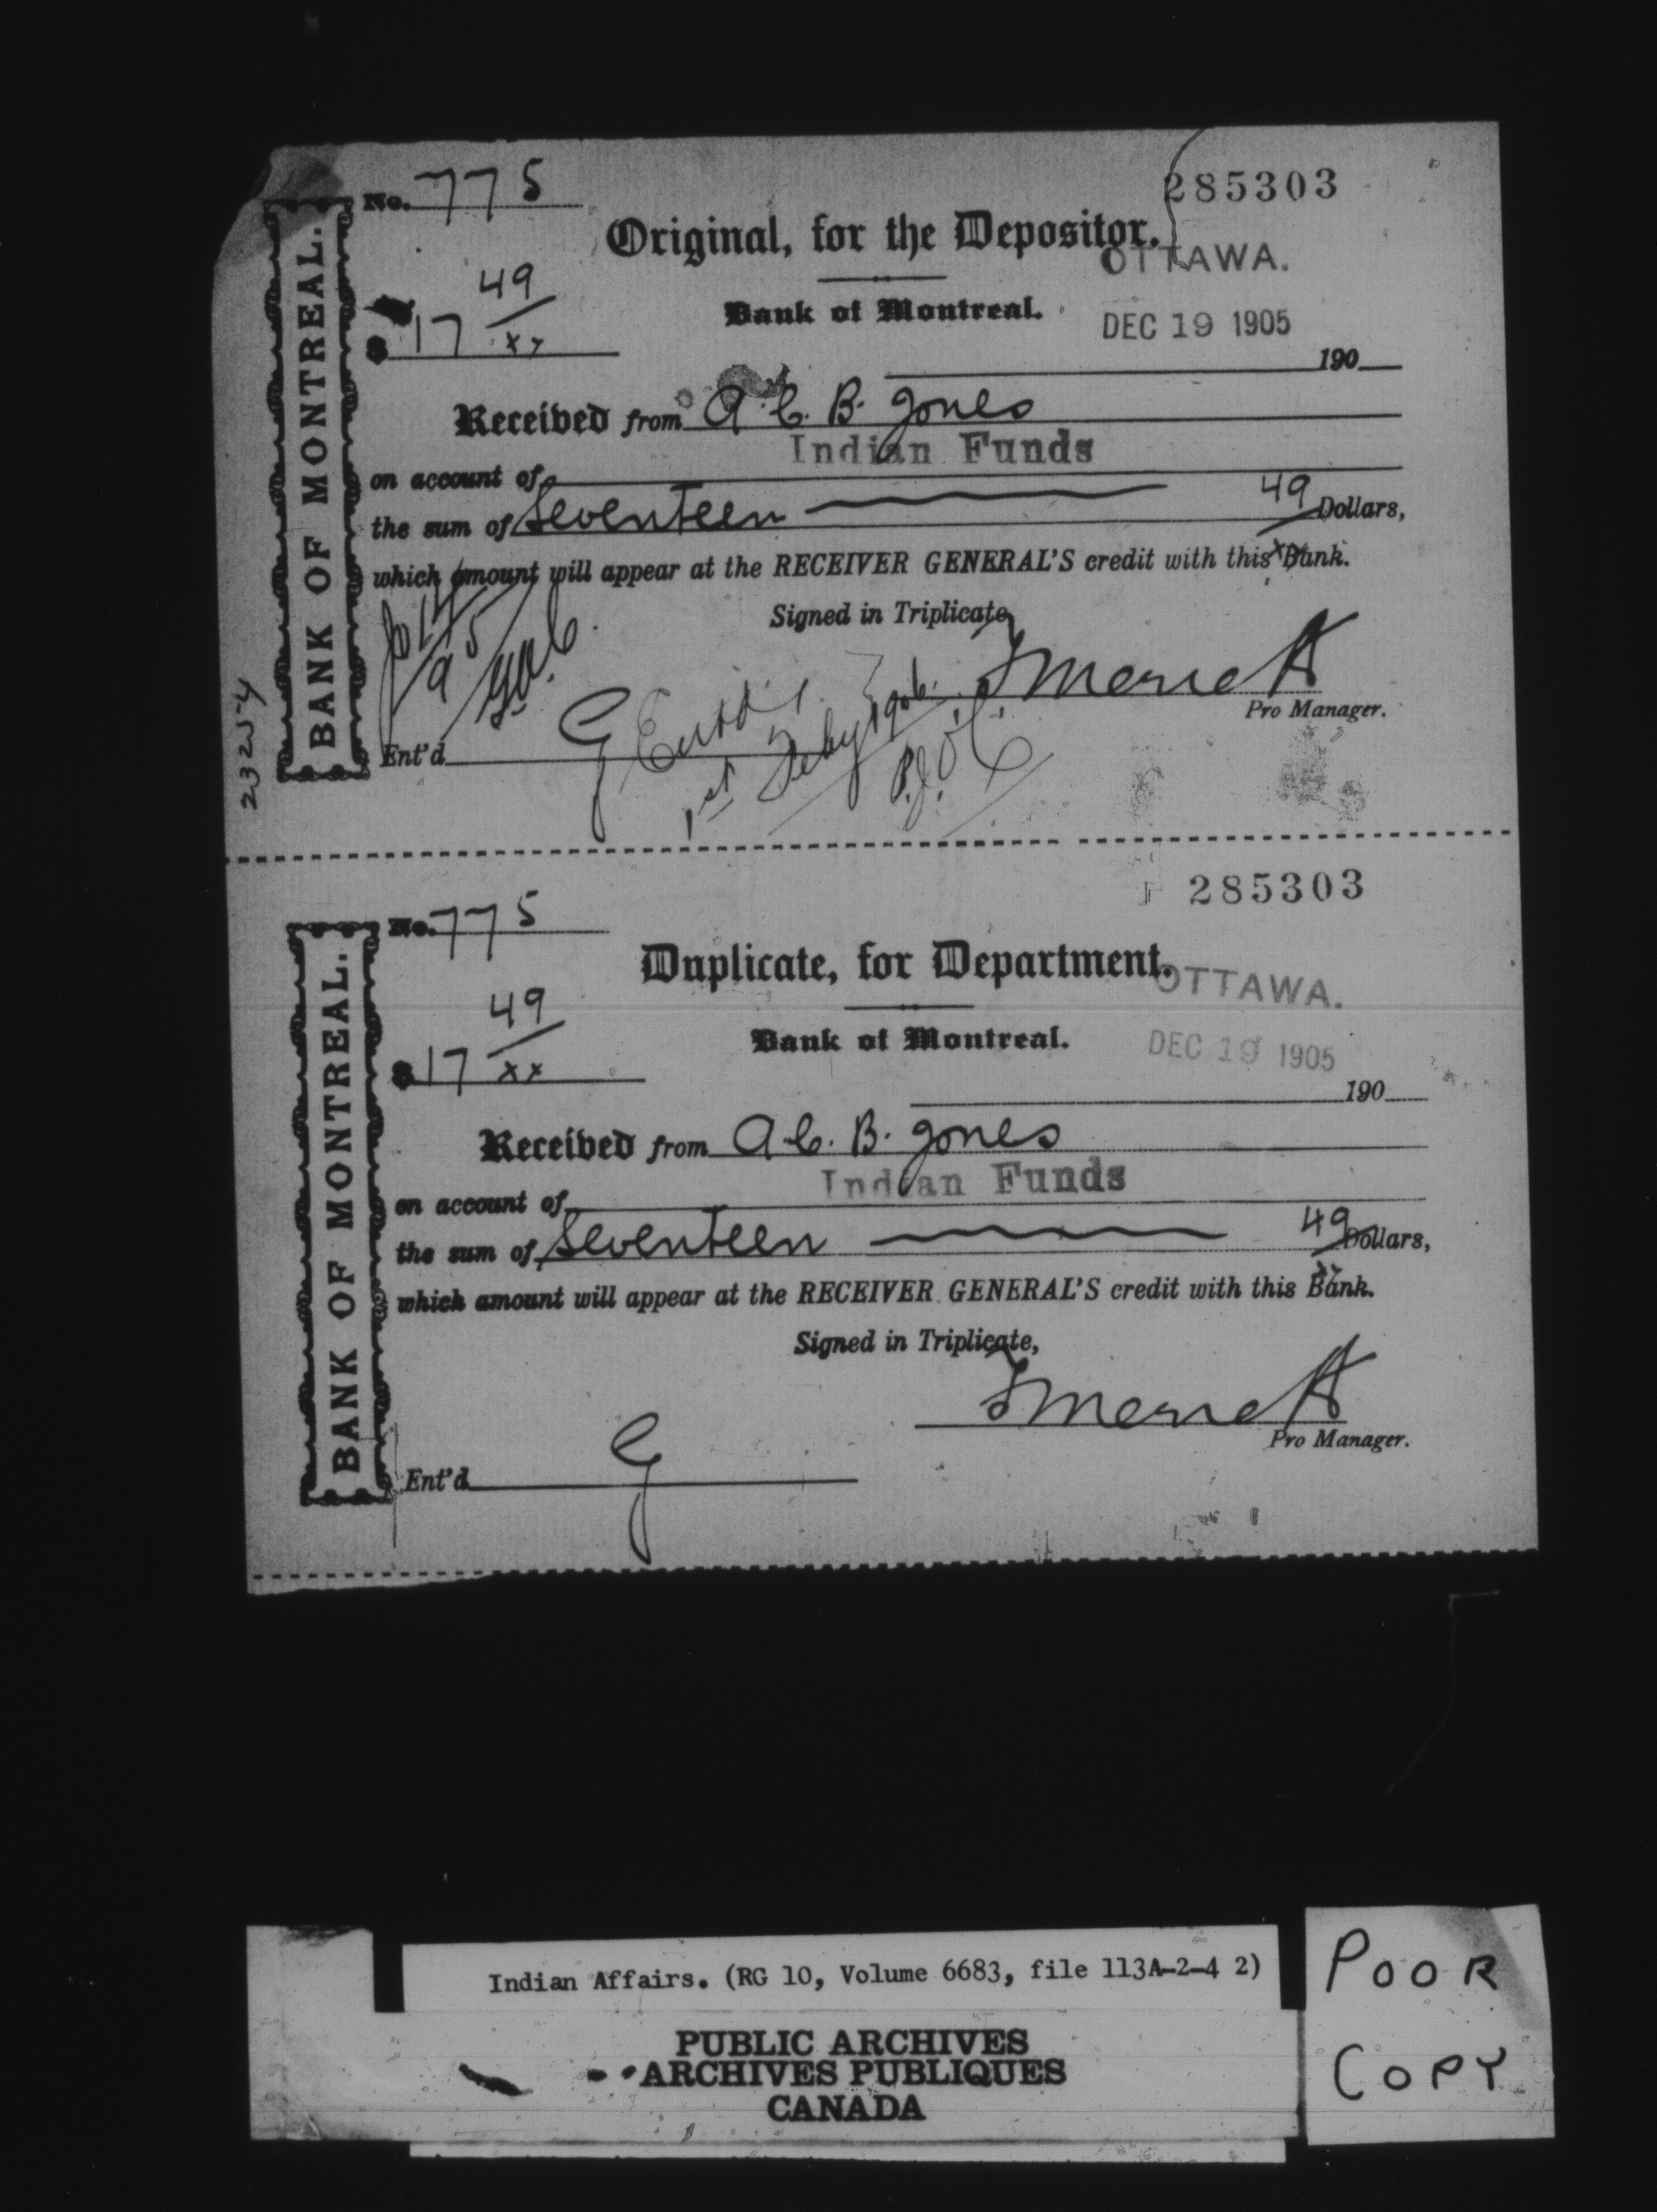 No. 775
285303
Original, for the Depositor.
OTTAWA.
Bank of Montreal.
DEC 19 1905
$ 17 49/xx
190
Received from A. C. B. Jones
Indian Funds
on account of
the sum of Seventeen 49/xx Dollars,
which amount will appear at the RECEIVER GENERAL'S credit with this Bank.
Signed in Triplicate,
Pro Manager.
Ent'd
1st Feby 1906.
BANK OF MONTREAL.
23254
285303
No. 775
Duplicate, for Department.
OTTAWA.
Bank of Montreal.
DEC 19 1905
$ 17 49/xx
190
Received from A. C. B. Jones
Indian Funds
on account of
the sum of Seventeen 49/xx Dollars,
which amount will appear at the RECEIVER GENERAL'S credit with this Bank.
Signed in Triplicate,
Pro Manager.
Ent'd
BANK OF MONTREAL.
Indian Affairs. (RG 10, Volume 6683, file 113A-2-4 2)
PUBLIC ARCHIVES
ARCHIVES PUBLIQUES
CANADA
POOR
COPY